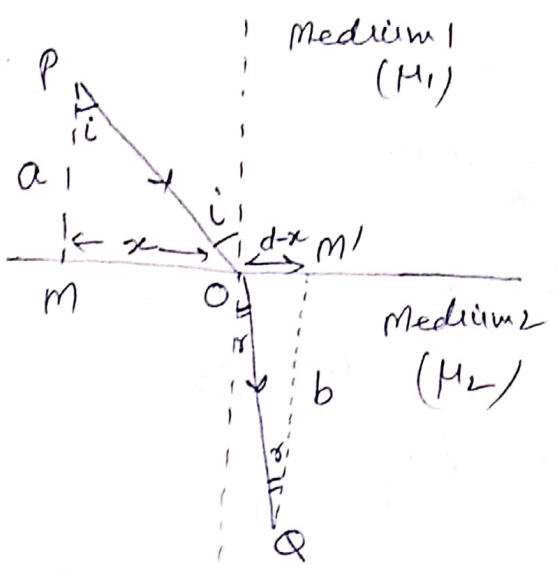 Medium 1
(μ₁)
P
i
a
i
x
d-x
M'
M
O
Medium 2
(μ₂)
r
b
r
Q